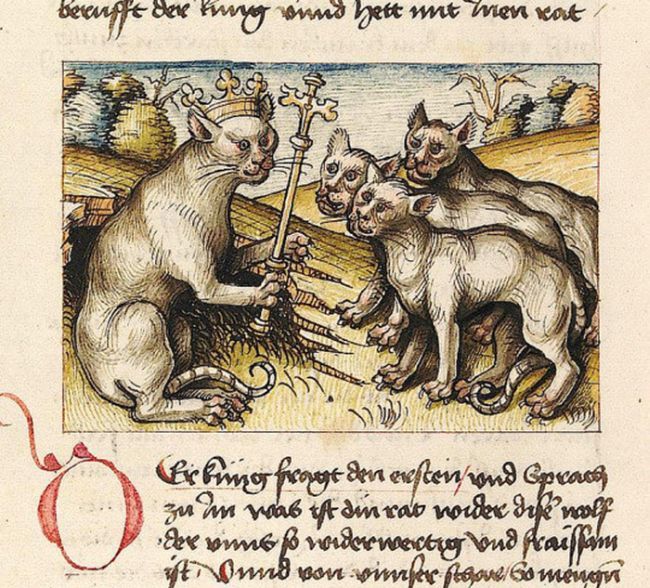 berufft der küng vnnd hett mit Inen rat /
DEr küng fragt den ersten / vnd Sprach
zu Im was ist din rat wider dise wolf
der vnns so widerwertig vnd fraissam
ist / Vnnd von vnnser schar / So